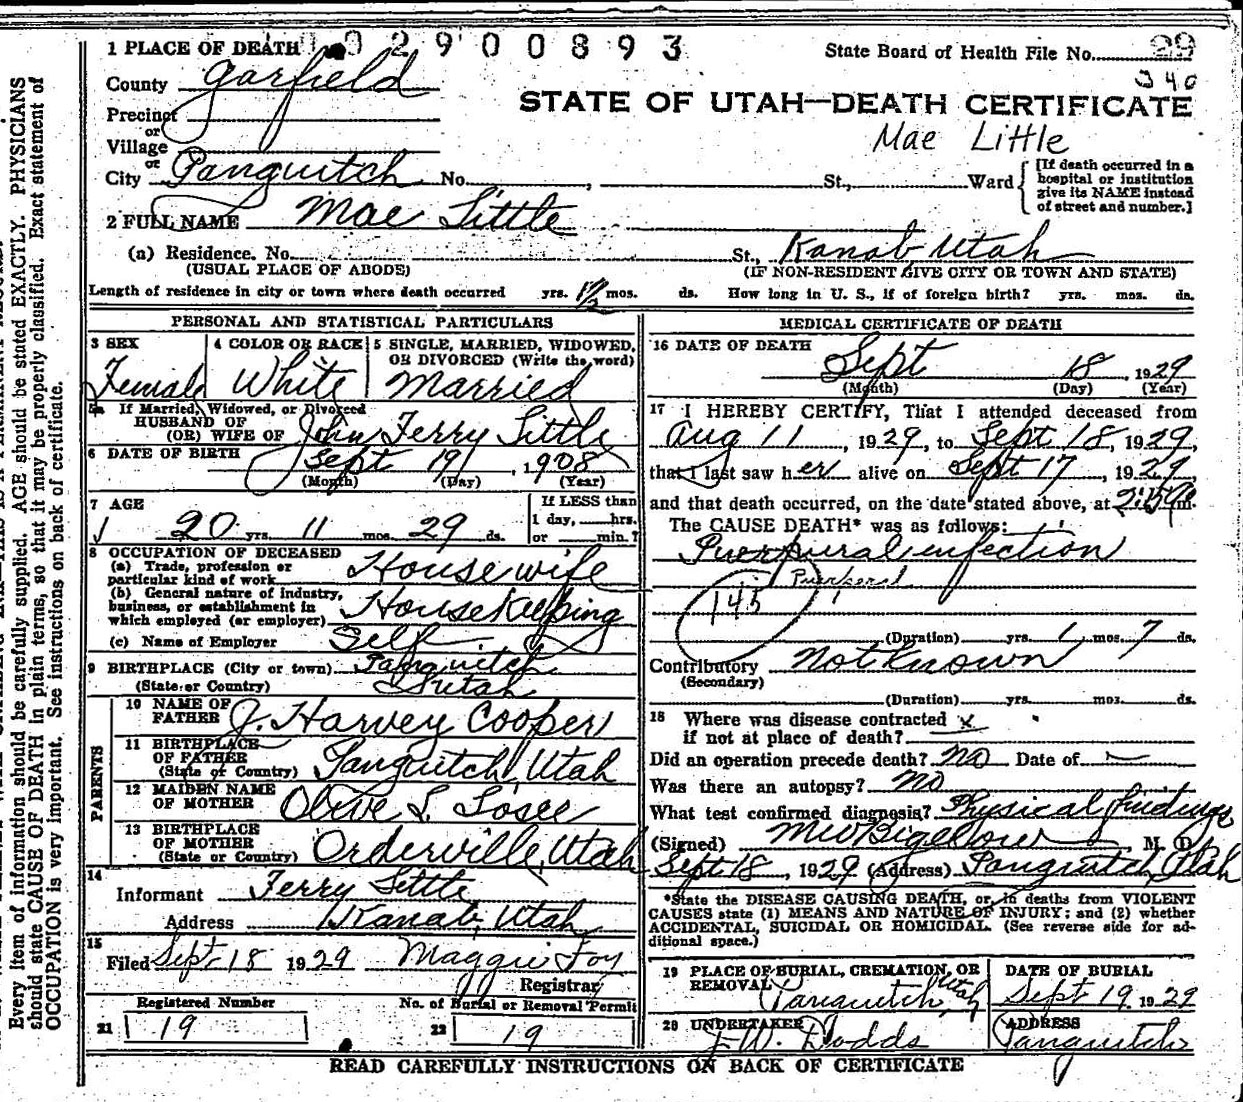 1 PLACE OF DEATH 02900893
State Board of Health File No. 29
340
County Garfield
STATE OF UTAH—DEATH CERTIFICATE
Precinct
or
Village
Mae Little
or
City Panguitch No. , St., Ward
[If death occurred in a
hospital or institution
give its NAME instead
of street and number.]
2 FULL NAME Mae Little
(a) Residence. No. St., Kanab, Utah
(USUAL PLACE OF ABODE) (IF NON-RESIDENT GIVE CITY OR TOWN AND STATE)
Length of residence in city or town where death occurred yrs. 1½ mos. ds. How long in U. S., if of foreign birth? yrs. mos. ds.
PERSONAL AND STATISTICAL PARTICULARS
3 SEX
Female
4 COLOR OR RACE
White
5 SINGLE, MARRIED, WIDOWED,
OR DIVORCED (Write the word)
Married
5a If Married, Widowed, or Divorced
HUSBAND OF
(OR) WIFE OF John Ferry Little
6 DATE OF BIRTH
Sept 19, 1908
(Month) (Day) (Year)
7 AGE
20 yrs. 11 mos. 29 ds.
If LESS than
1 day, hrs.
or min.?
8 OCCUPATION OF DECEASED
(a) Trade, profession or
particular kind of work Housewife
(b) General nature of industry,
business, or establishment in
which employed (or employer) HouseKeeping
(c) Name of Employer Self
9 BIRTHPLACE (City or town) Panguitch
(State or Country) Utah
PARENTS
10 NAME OF
FATHER J. Harvey Cooper
11 BIRTHPLACE
OF FATHER
(State or Country) Panguitch, Utah
12 MAIDEN NAME
OF MOTHER Olive L. Losee
13 BIRTHPLACE
OF MOTHER
(State or Country) Orderville, Utah
14
Informant Ferry Little
Address Kanab, Utah
15
Filed Sept 18 1929 Maggie Foy
Registrar
Registered Number No. of Burial or Removal Permit
21 19 22 19
MEDICAL CERTIFICATE OF DEATH
16 DATE OF DEATH
Sept 18, 1929
(Month) (Day) (Year)
17 I HEREBY CERTIFY, That I attended deceased from
Aug 11, 1929, to Sept 18, 1929,
that I last saw her alive on Sept 17, 1929,
and that death occurred, on the date stated above, at m.
The CAUSE DEATH* was as follows:
Puerpural infection
Puerperal
145
(Duration) yrs. 1 mos. 7 ds.
Contributory Not Known
(Secondary)
(Duration) yrs. mos. ds.
18 Where was disease contracted x
if not at place of death?
Did an operation precede death? no Date of
Was there an autopsy? no
What test confirmed diagnosis? Physical findings
(Signed) M W Bigelow, M. D.
Sept 18, 1929 (Address) Panguitch, Utah
*State the DISEASE CAUSING DEATH, or, in deaths from VIOLENT
CAUSES state (1) MEANS AND NATURE OF INJURY; and (2) whether
ACCIDENTAL, SUICIDAL OR HOMICIDAL. (See reverse side for ad-
ditional space.)
19 PLACE OF BURIAL, CREMATION, OR
REMOVAL Panguitch, Utah
DATE OF BURIAL
Sept 19, 1929
20 UNDERTAKER
Dodds
ADDRESS
Panguitch
READ CAREFULLY INSTRUCTIONS ON BACK OF CERTIFICATE
Every item of information should be carefully supplied. AGE should be stated EXACTLY. PHYSICIANS
should state CAUSE OF DEATH in plain terms, so that it may be properly classified. Exact statement of
OCCUPATION is very important. See instructions on back of certificate.